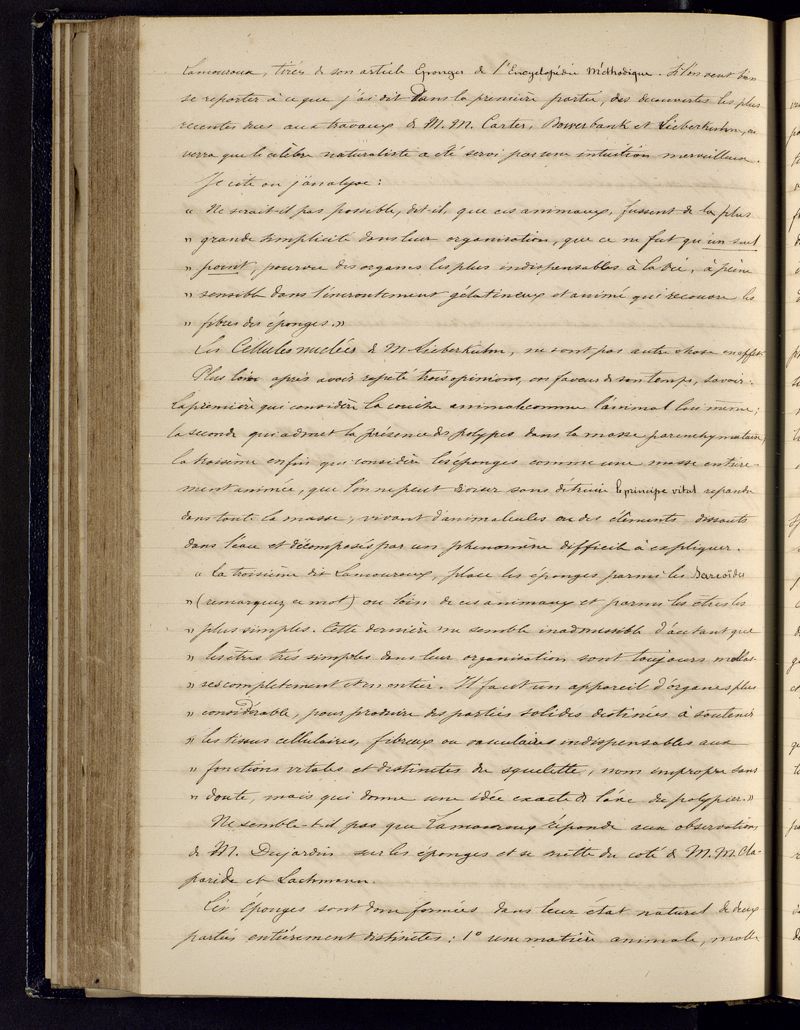 Lamouroux, tirés de son article Eponges de l'Encyclopédie Méthodique. Si l'on veut bien
se reporter à ce que j'ai dit dans la première partie, des découvertes les plus
recentes dues aux travaux de M.M. Carter, Bowerbank et Lieberkuhn, on
verra que le célèbre naturaliste a été servi par une intuition merveilleuse.
Je cite ou j'analyse :
" Ne serait-il pas possible, dit-il, que ces animaux, fussent de la plus
" grande simplicité dans leur organisation, que ce ne fut qu'un seul
" point, pourvu des organes les plus indispensables à la vie, à peine
" sensible dans l'encroutement gélatineux et animé qui recouvre les
" fibres des éponges."
Les Cellules nuclées de M. Lieberkuhn, ne sont pas autre chose en effet.
Plus loin après avoir refuté trois opinions, en faveur de son temps, savoir :
La première qui considère la couche animale comme l'animal lui même ;
la seconde qui admet la présence des polypes dans la masse parenchymateuse,
la troisième enfin qui considère les éponges comme une masse entière-
ment animée, que l'on ne peut diviser sans détruire le principe vital repandu
dans toute la masse, vivant d'animalcules ou des éléments dissouts
dans l'eau et décomposés par un phenomène difficile à expliquer.
" La troisième dit Lamouroux, place les éponges parmi les Sarcoïdes
" (remarquez ce mot) ou loin de ces animaux et parmi les êtres les
" plus simples. Cette dernière me semble inadmissible d'autant que
" les êtres très simples dans leur organisation sont toujours mollas-
" ses completement et en entier. Il faut un appareil d'organes plus
" considérable, pour produire des parties solides destinées à soutenir
" les tissus cellulaires, fibreux ou vasculaires indispensables aux
" fonctions vitales et distinctes du squelette, nom impropre sans
" doute, mais qui donne une idée exacte de l'axe du polypier."
Ne semble-t-il pas que Lamouroux réponde aux observations
de M. Dujardin sur les éponges et se mette du coté de M.M. Cla-
paride et Lachmann.
Les éponges sont donc formées dans leur état naturel de deux
parties entièrement distinctes : 1° une matière animale, molle